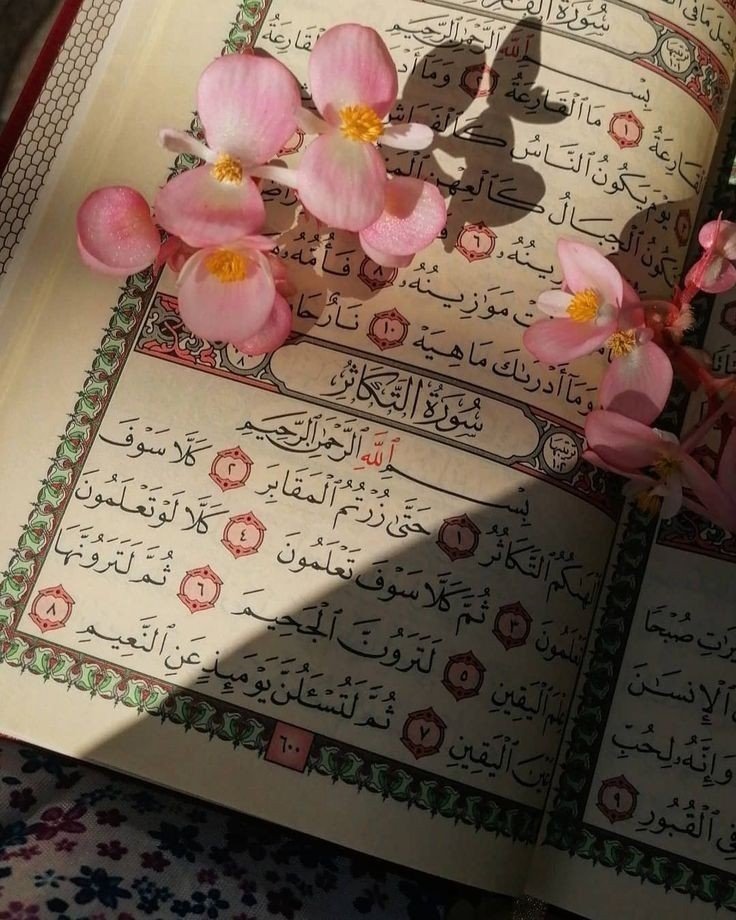 سُورَةُ ٱلْقَارِعَةِ
بِسْمِ ٱللَّهِ ٱلرَّحْمَٰنِ ٱلرَّحِيمِ
ٱلْقَارِعَةُ ١ مَا ٱلْقَارِعَةُ ٢ وَمَآ
يَوْمَ يَكُونُ ٱلنَّاسُ كَٱلْفَرَاشِ
وَتَكُونُ ٱلْجِبَالُ كَٱلْعِهْنِ
مَوَٰزِينُهُۥ ٦
مَوَٰزِينُهُۥ ٨ فَأُمُّهُۥ
وَمَآ أَدْرَىٰكَ مَا هِيَهْ ١٠ نَارٌ
سُورَةُ ٱلتَّكَاثُرِ
بِسْمِ ٱللَّهِ ٱلرَّحْمَٰنِ ٱلرَّحِيمِ
أَلْهَىٰكُمُ ٱلتَّكَاثُرُ ١ حَتَّىٰ زُرْتُمُ ٱلْمَقَابِرَ ٢ كَلَّا سَوْفَ
تَعْلَمُونَ ٣ ثُمَّ كَلَّا سَوْفَ تَعْلَمُونَ ٤ كَلَّا لَوْ تَعْلَمُونَ
عِلْمَ ٱلْيَقِينِ ٥ لَتَرَوُنَّ ٱلْجَحِيمَ ٦ ثُمَّ لَتَرَوُنَّهَا
عَيْنَ ٱلْيَقِينِ ٧ ثُمَّ لَتُسْـَٔلُنَّ يَوْمَئِذٍ عَنِ ٱلنَّعِيمِ ٨
٦٠٠
صُبْحًا
ٱلْإِنسَٰنَ
وَإِنَّهُۥ لِحُبِّ
فِي ٱلْقُبُورِ ٩